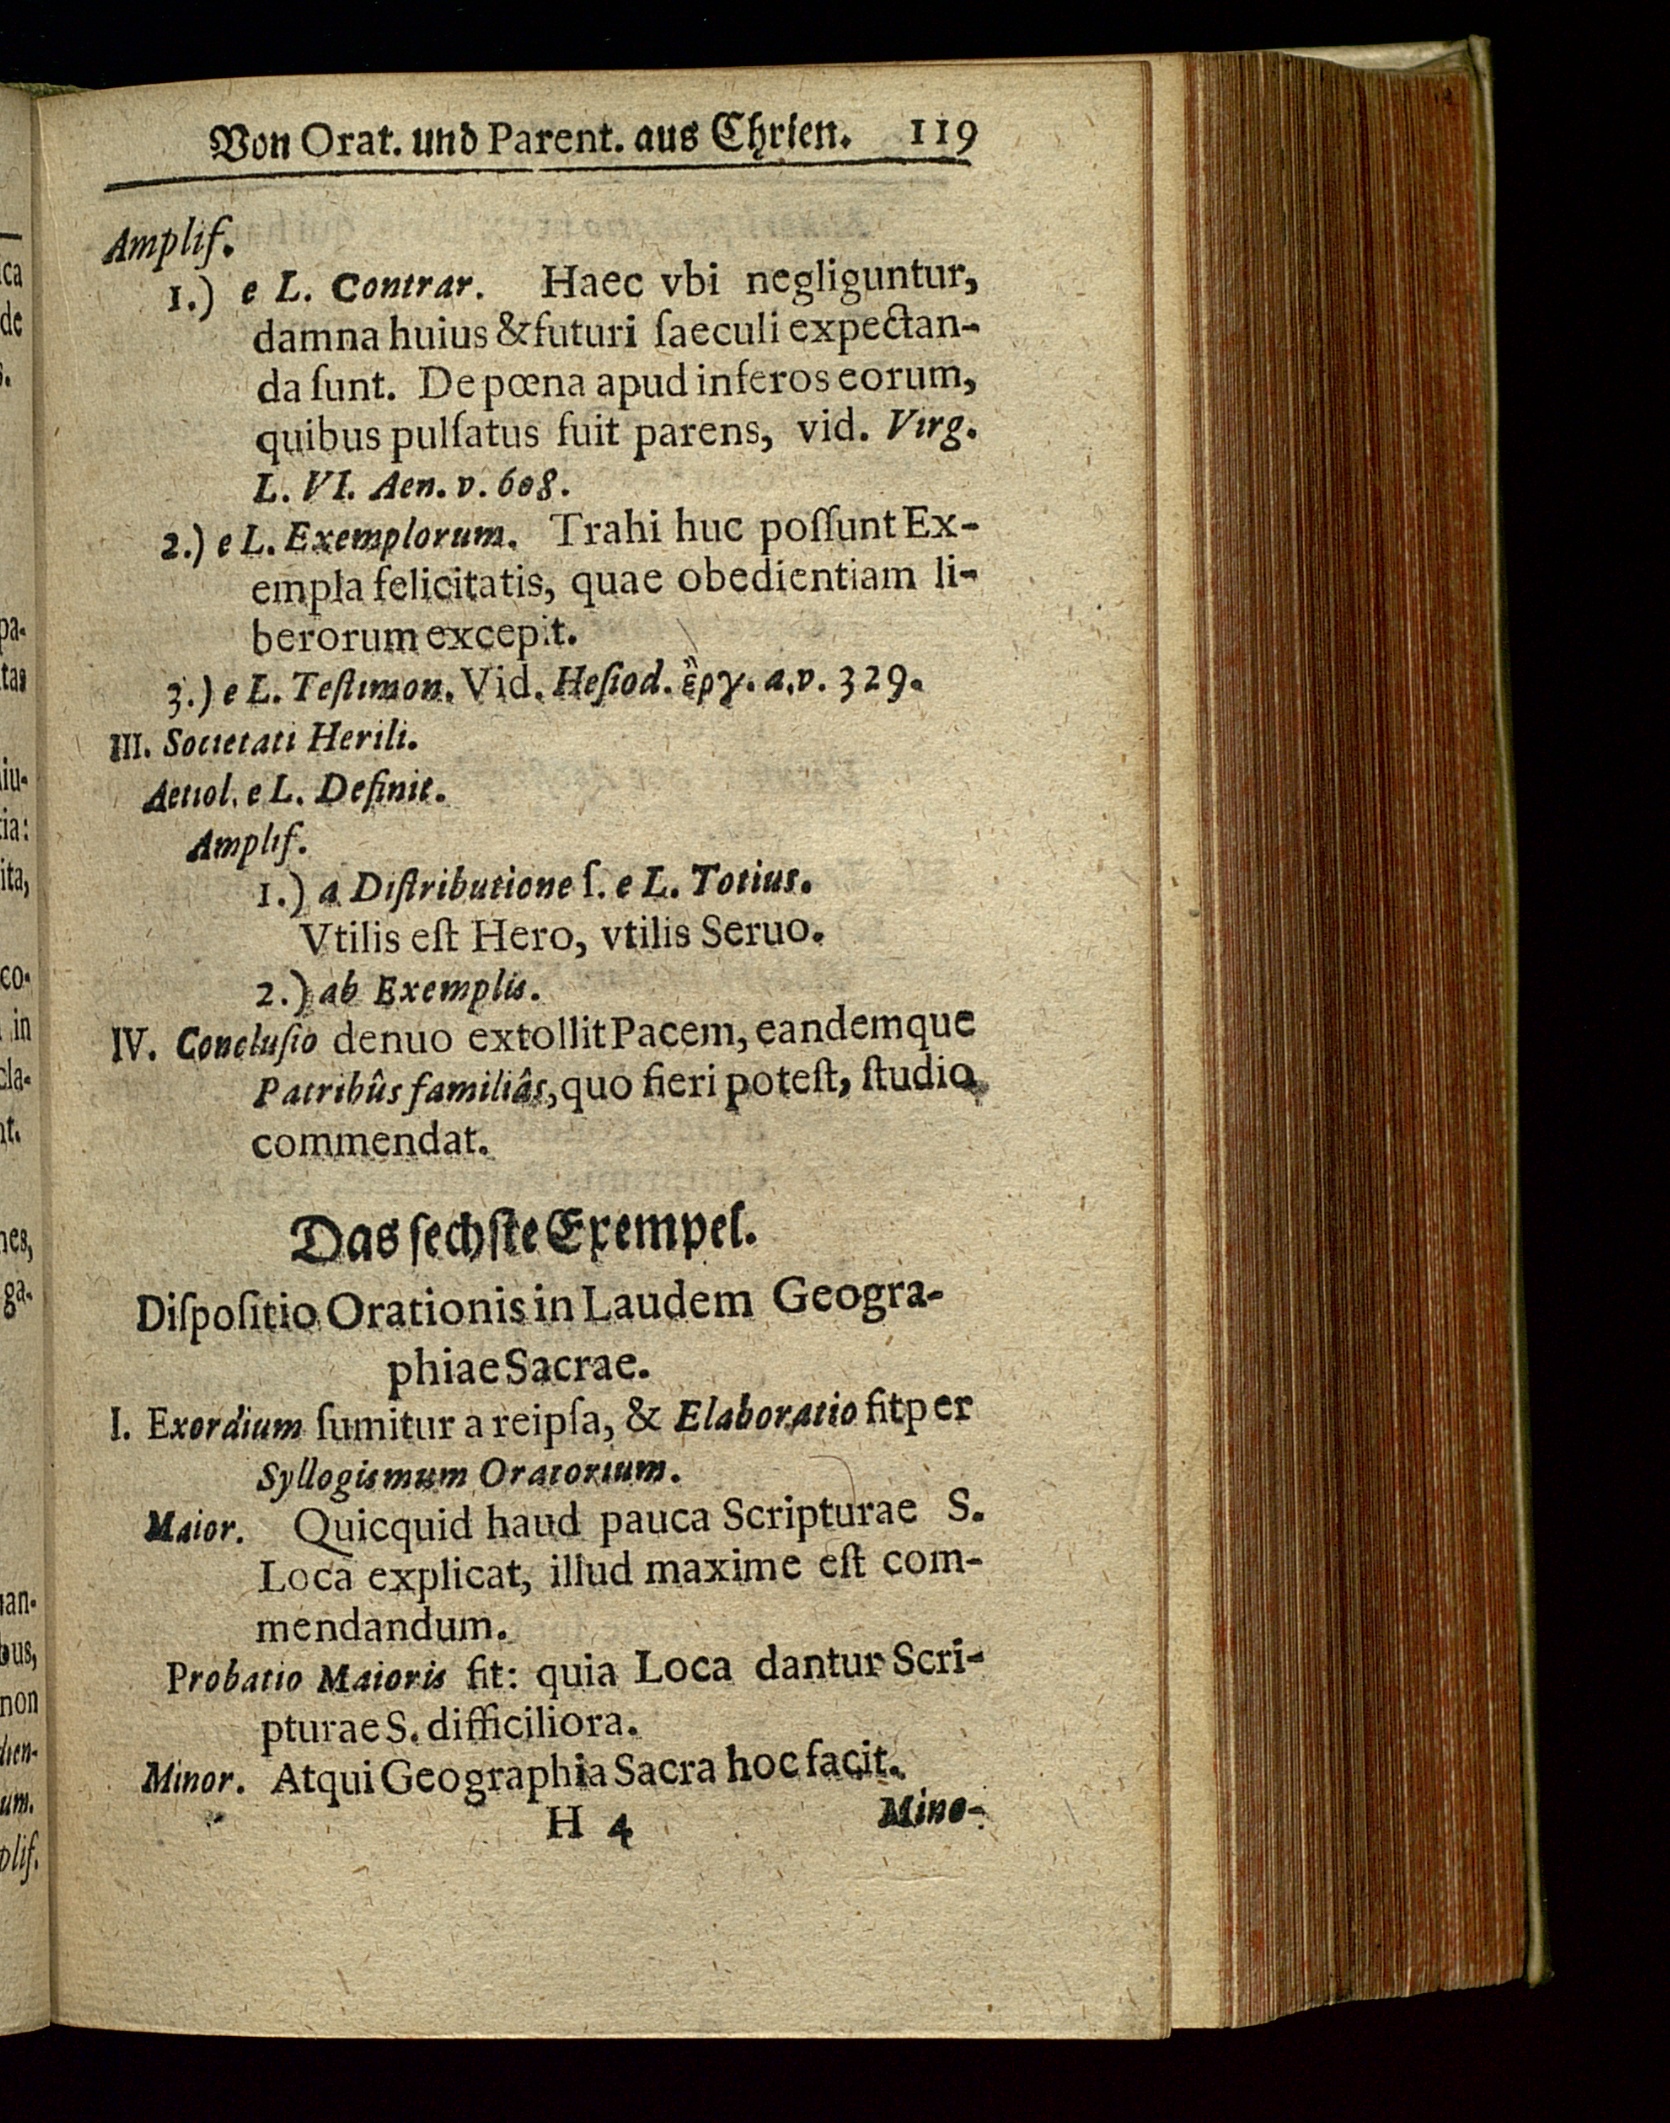 Von Orat. und Parent. aus Chrien. 119
Amplif.
1.) e L. Contrar. Haec vbi negliguntur,
damna huius & futuri ſaeculi expectan-
da ſunt. De pœna apud inferos eorum,
quibus pulſatus fuit parens, vid. Virg.
L. VI. Aen. v. 608.
2.) e L. Exemplorum. Trahi huc poſſunt Ex-
empla felicitatis, quae obedientiam li-
berorum excepit.
3.) e L. Teſtimon. Vid. Heſiod. ἔργ. α. v. 329.
III. Societati Herili.
Aetiol. e L. Definit.
Amplif.
1.) a Diſtributione ſ. e L. Totius.
Vtilis eſt Hero, vtilis Seruo.
2.) ab Exemplis.
IV. Concluſio denuo extollit Pacem, eandemque
Patribûs familiâs, quo fieri poteſt, ſtudio
commendat.
Das ſechſte Exempel.
Diſpoſitio Orationis in Laudem Geogra-
phiae Sacrae.
I. Exordium ſumitur a re ipſa, & Elaboratio fit per
Syllogismum Oratorium.
Maior. Quicquid haud pauca Scripturae S.
Loca explicat, illud maxime eſt com-
mendandum.
Probatio Maioris fit: quia Loca dantur Scri-
pturae S. difficiliora.
Minor. Atqui Geographia Sacra hoc facit.
H 4 Mino-